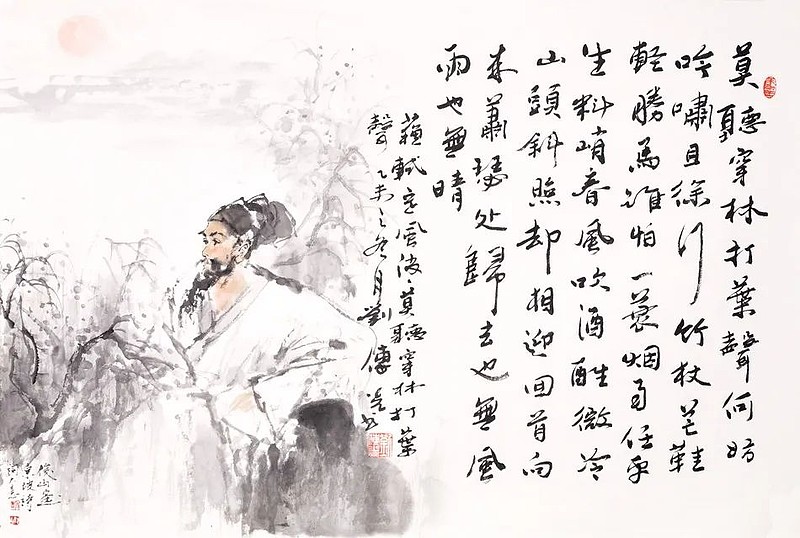 莫聽穿林打葉聲何妨
吟嘯且徐行竹杖芒鞋
輕勝馬誰怕一蓑烟雨任平
生料峭春風吹酒醒微冷
山頭斜照却相迎回首向
来蕭瑟处歸去也無風
雨也無晴
蘇軾定風波·莫聽穿林打葉
聲乙未之冬月劉傳
東坡詩